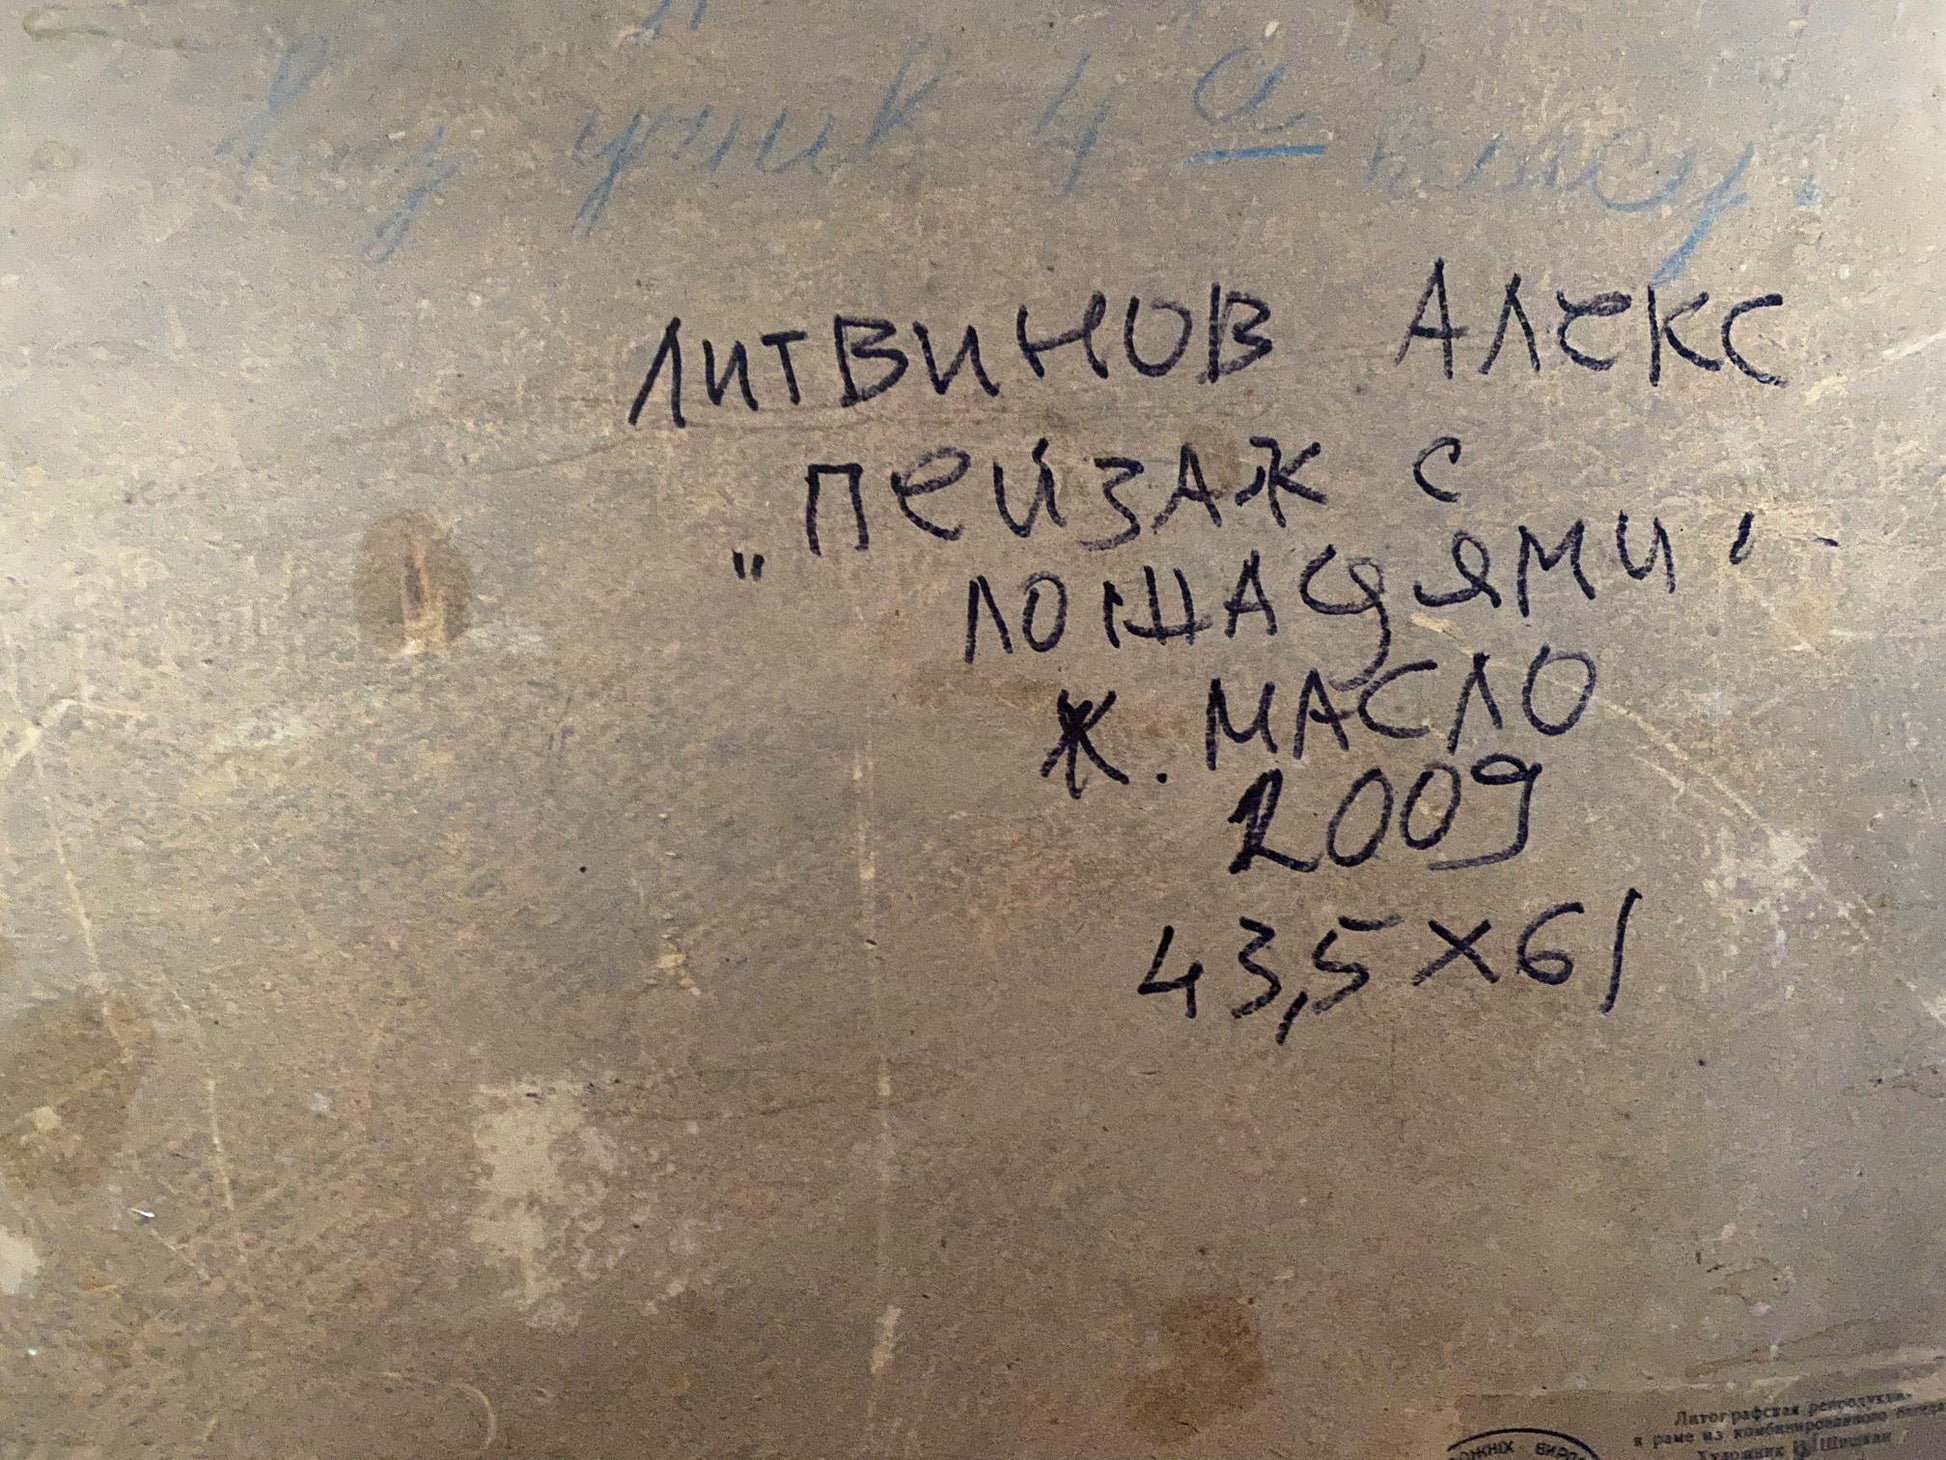 учнів 4 а класу.
ЛИТВИНОВ АЛЕКС
"ПЕЙЗАЖ С
ЛОШАДЯМИ"
Ж. МАСЛО
2009
43,5 X 61
Литографская репродукция
в раме из комбинированного
Художник Шишкин
ОЖНІХ ВИРО